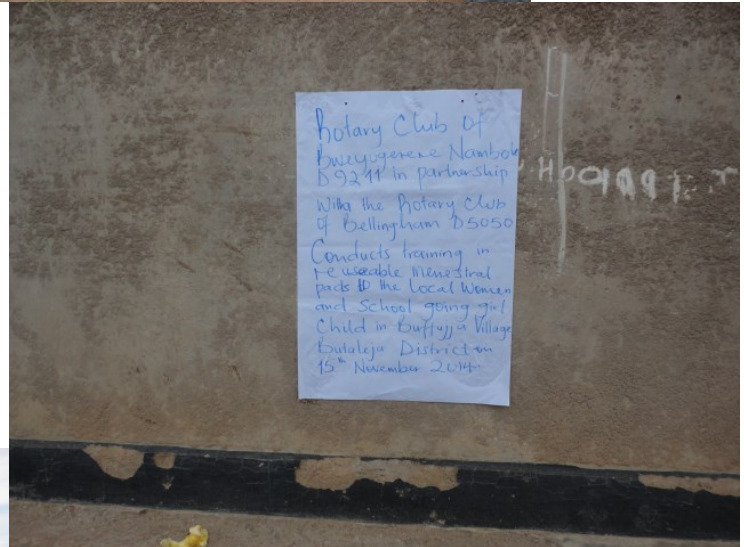 Rotary Club of
Bweyogerere Nambole
D9211 in partnership
With the Rotary Club
of Bellingham D5050
Conducts training in
reuseable Menestral
pads to the Local Women
and School going girl
Child in Buffujja Village
Butaleja District on
15th November 2014